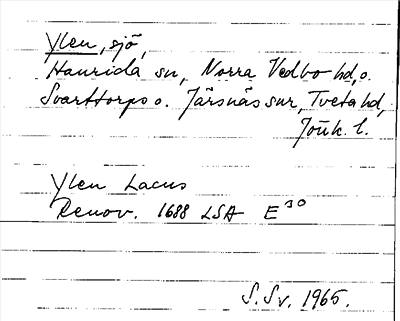 Ylen, sjö,
Haurida sn, Norra Vedbo hd, o.
Svarttorps o. Järsnäs snr, Tveta hd,
Jönk. l.
Ylen Lacus
Renov. 1688 LSA E³⁰
S. Sv. 1965.